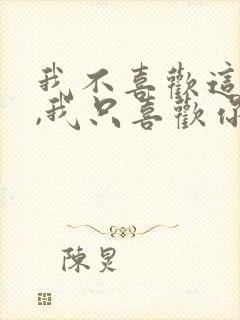 我不喜歡這
,我只喜歡你
陳炅